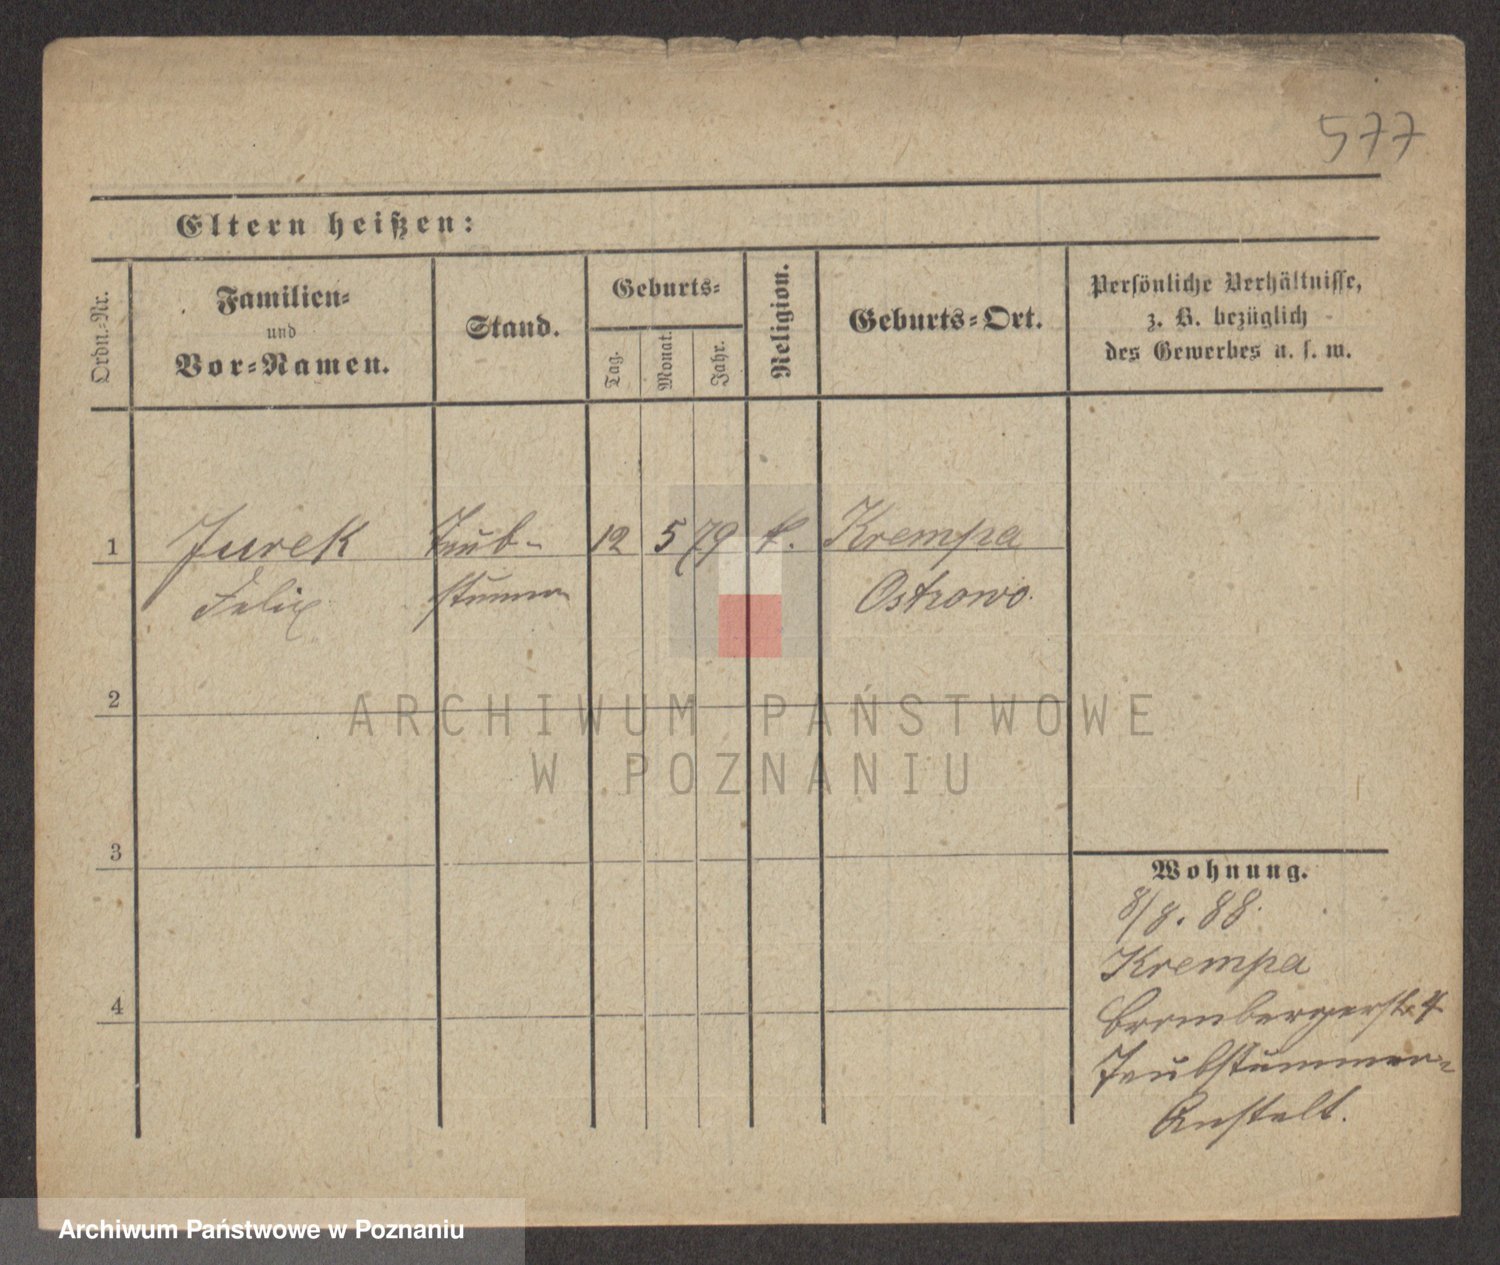 577
Eltern heißen:
Ordn.-Nr.
Familien-
und
Vor-Namen.
Stand.
Geburts-
Tag.
Monat.
Jahr.
Religion.
Geburts-Ort.
Persönliche Verhältnisse,
z. B. bezüglich
des Gewerbes u. s. w.
1 Jurek Taub- 12 5 79 k. Krempa
Felix stumm Ostrowo.
2
3
4
Wohnung.
8/8. 88.
Krempa
Brombergerstr. 4
Taubstummen-
Anstalt.
ARCHIWUM PAŃSTWOWE
W POZNANIU
Archiwum Państwowe w Poznaniu